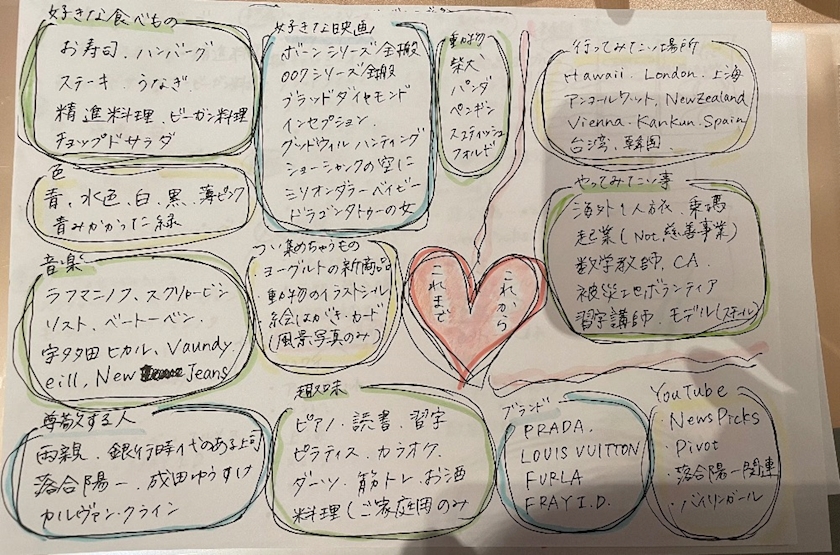 好きな食べもの
お寿司、ハンバーグ
ステーキ、うなぎ、
精進料理、ビーガン料理
チョップドサラダ
好きな映画
ボーンシリーズ全般
007シリーズ全般
ブラッドダイヤモンド
インセプション、
グッドウィルハンティング
ショーシャンクの空に
ミリオンダラーベイビー
ドラゴンタトゥーの女
動物
柴犬
パンダ
ペンギン
スコティッシュ
フォルド
行ってみたい場所
Hawaii、London、上海
アンコールワット、NewZealand
Vienna、Kankun、Spain
台湾、韓国、
色
青、水色、白、黒、薄ピンク
青みかかった緑
つい集めちゃうもの
ヨーグルトの新商品
・動物のイラストシール
絵はがき・カード
(風景写真のみ)
これまで
これから
やってみたい事
海外1人旅、乗馬
起業(Not 慈善事業)
数学教師、CA、
被災地ボランティア
習字講師、モデル(スチール)
音楽
ラフマニノフ、スクリャービン
リスト、ベートーベン、
宇多田ヒカル、Vaundy、
eill、New Jeans
尊敬する人
両親、銀行時代のある上司
落合陽一、成田ゆうすけ
カルヴァン・クライン
趣味
ピアノ・読書、習字
ピラティス、カラオケ、
ダーツ、筋トレ、お酒
料理(ご家庭用のみ
ブランド
PRADA、
LOUIS VUITTON
FURLA
FRAY I.D.
YouTube
・NewsPicks
・Pivot
・落合陽一関連
・バイリンガール